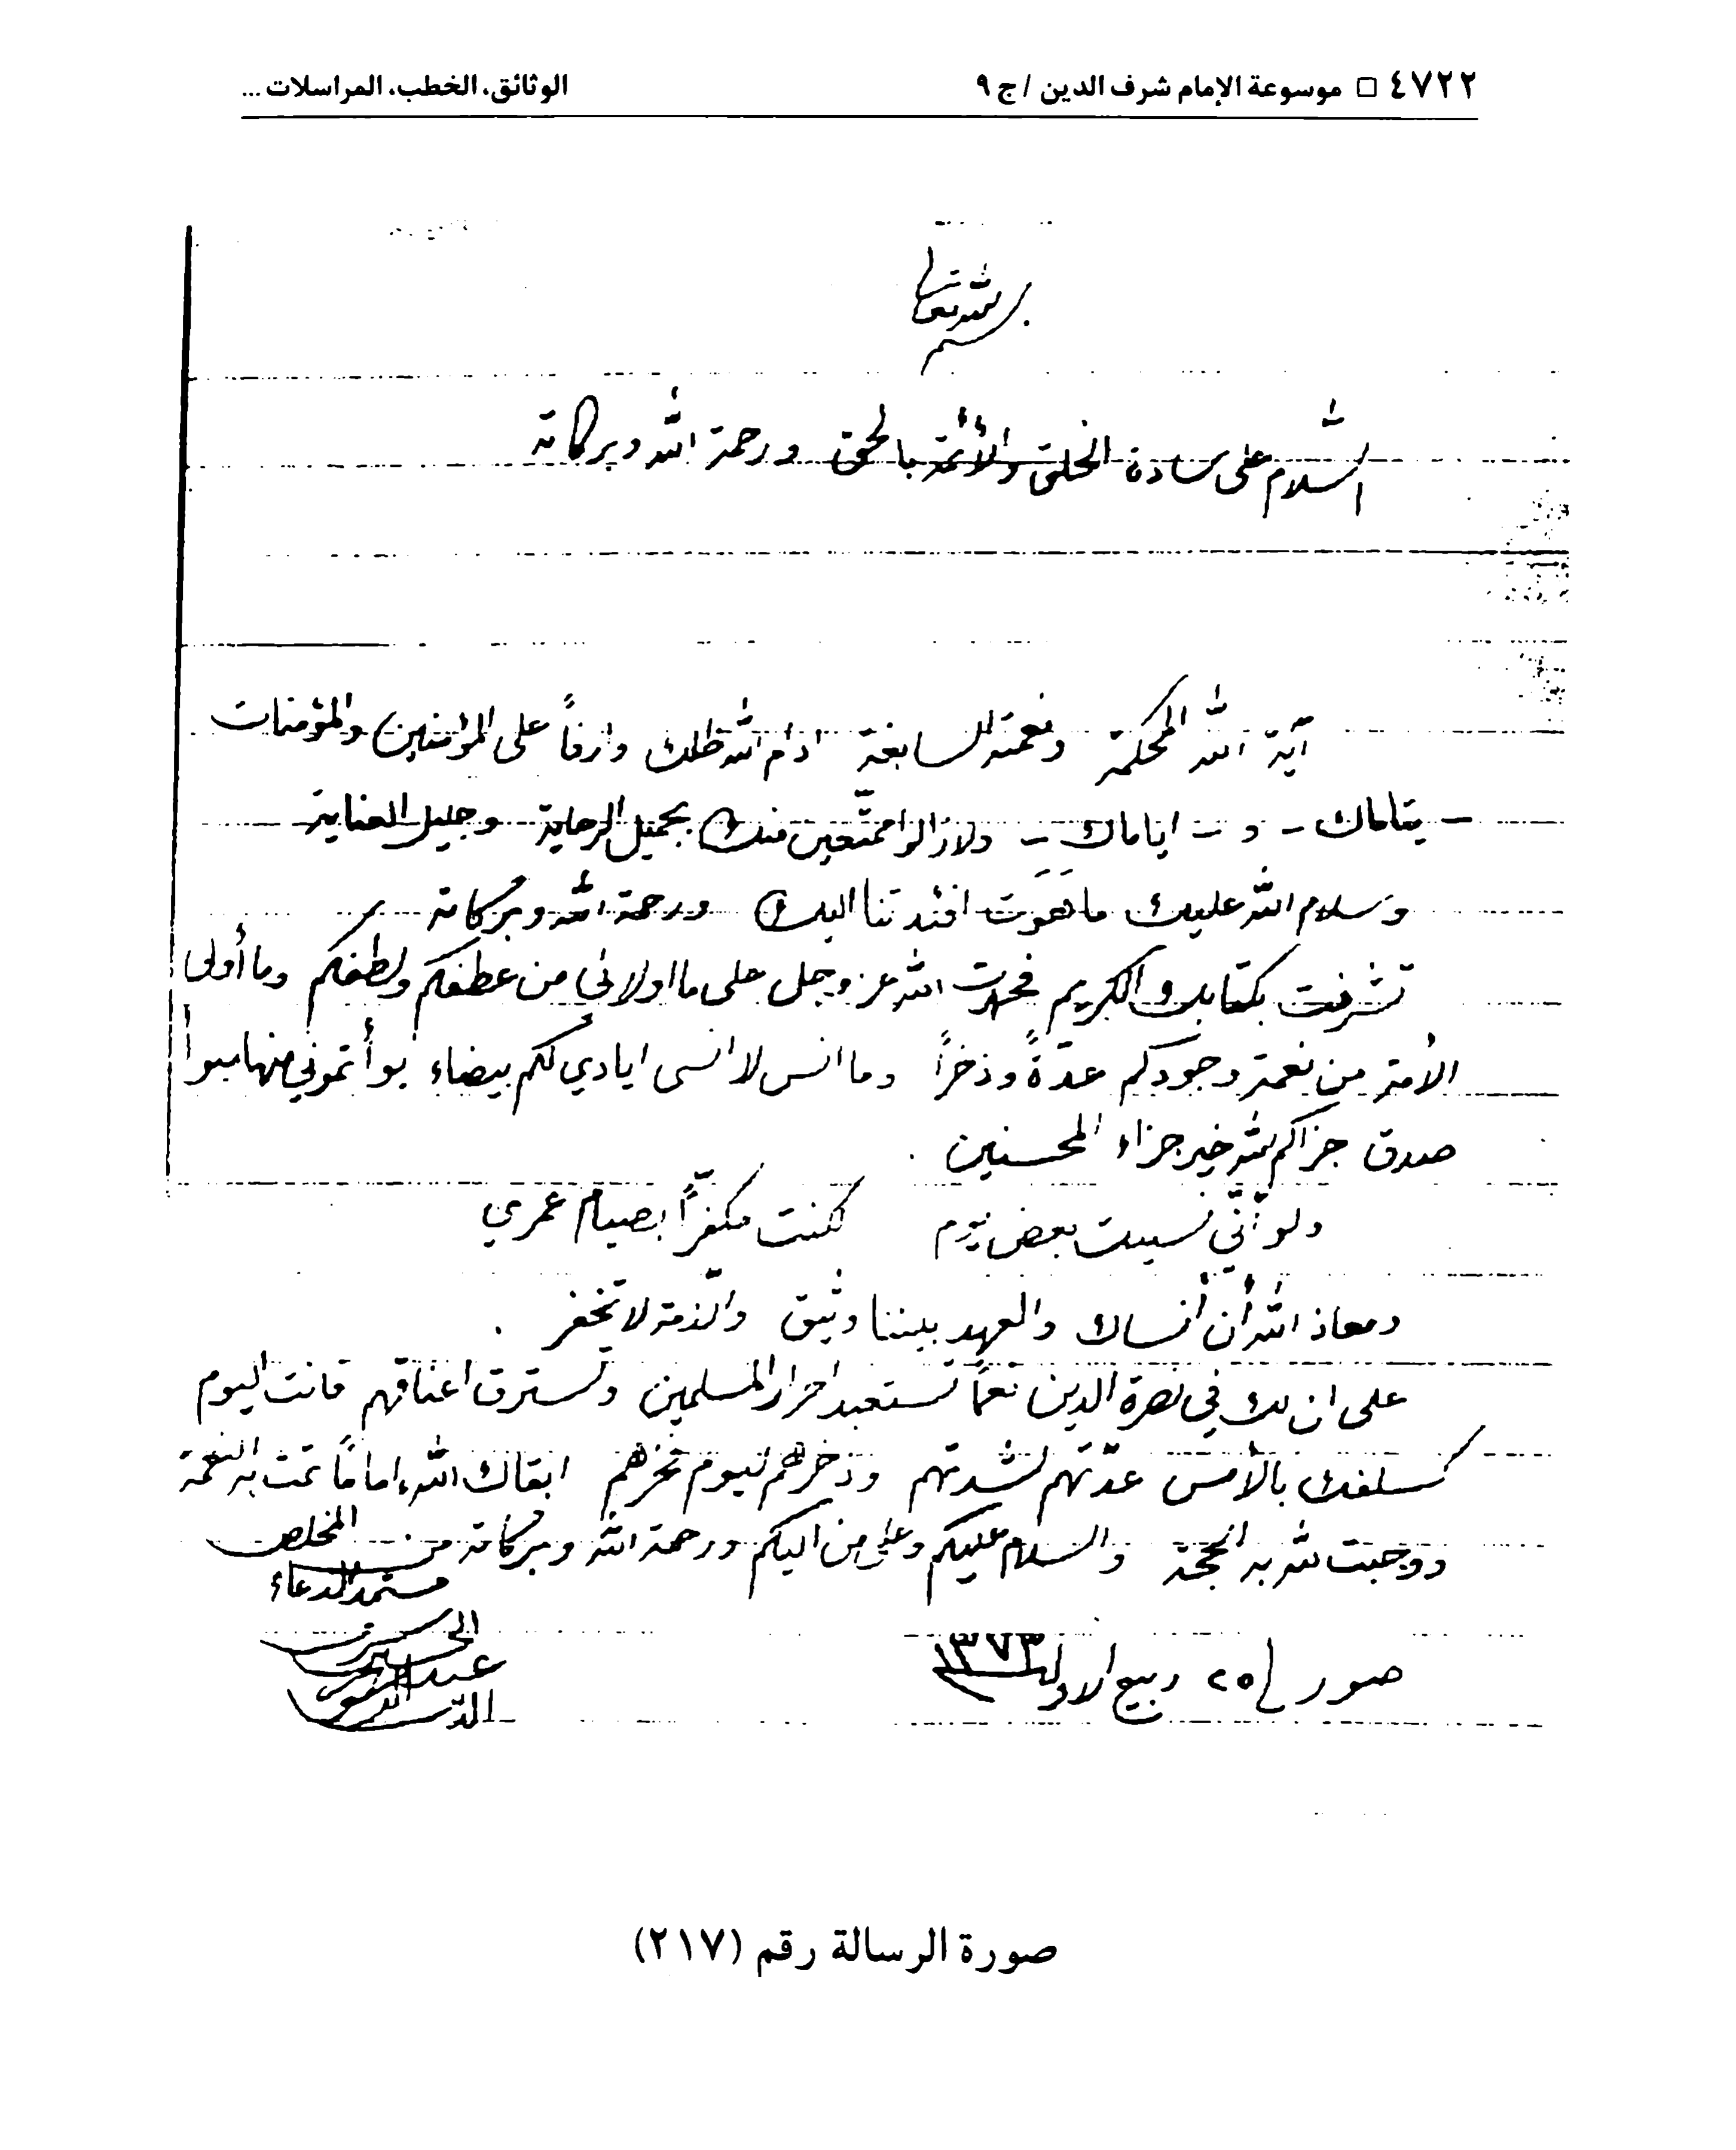 ٤٧٢٢ □ موسوعة الإمام شرف الدين / ج ٩
الوثائق، الخطب، المراسلات ...
بسم الله تعالى
السلام على سادة الخلق والأئمة بالحق ورحمة الله وبركاته
آية الله المحكمة ونعمته السابغة ادام الله ظلك وارفاً على المؤمنين والمؤمنات
- يتاماك - و - اياماك - ولازالوا ممتّعين منك بجميل الرعاية وجليل العناية
وسلام الله عليك ما هَوَت افئدتنا اليك ورحمة الله وبركاته
تشرفت بكتابك الكريم فحمدت الله عز وجل على ما اولاني من عطفكم ولطفكم وما أولى
الأمة من نعمة وجودكم عدّةً وذخراً وما انس لا انسى ايادي لكم بيضاء بوأتموني منها مبوأ
صدق جزاكم الله خير جزاء المحسنين .
ولو أنّي نسيت بعض يوم لكنت مكفّراً بصيام عمري
ومعاذ الله أن أنساك والعهد بيننا وثيق والذّمة لا تخفر .
على ان لك في نصرة الدين نعماً تستعبد احرار المسلمين وتسترق اعناقهم فانت اليوم
كسلفك بالأمس عدّتهم لشدتهم وذخرهم ليوم فخرهم ابقاك الله اماماً تمت به النعمة
ووجبت لله به الحجة والسلام عليكم وعلى من اليكم ورحمة الله وبركاته من المخلص
مستمد الدعاء
عبد الحسين شرف الدين الموسوي
صور في ٢٥ ربيع الاول ١٣٧٣
صورة الرسالة رقم (٢١٧)